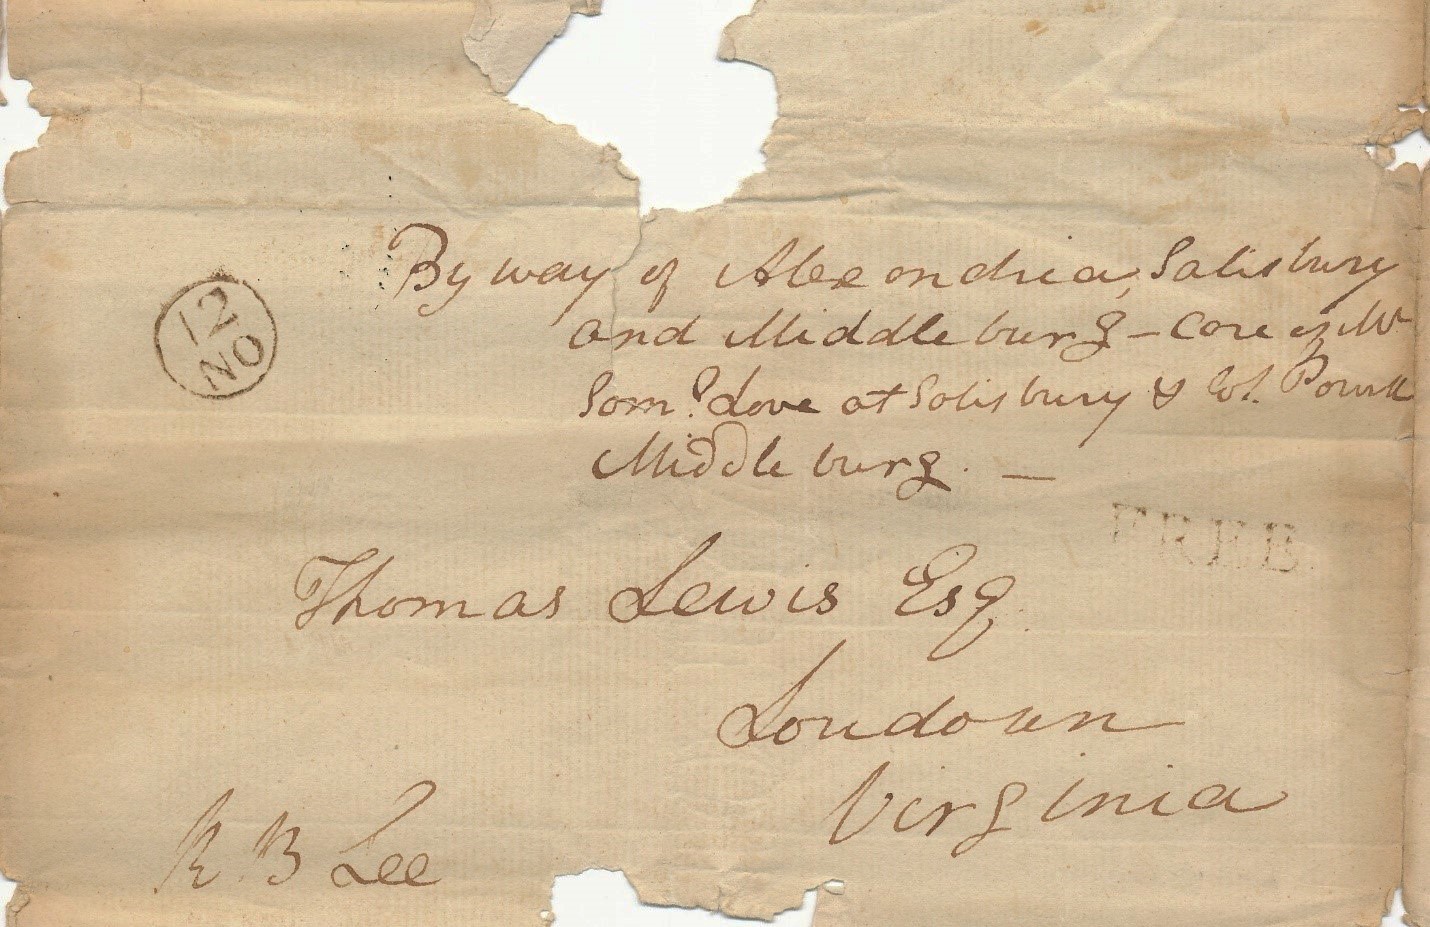 By way of Alexandria, Salisbury
and Middleburg - Care of Mr
Sam.l Love at Salisbury & Col. Powell
Middleburg. —
12
NO
FREE
Thomas Lewis Esq
Loudoun
Virginia
R. B Lee